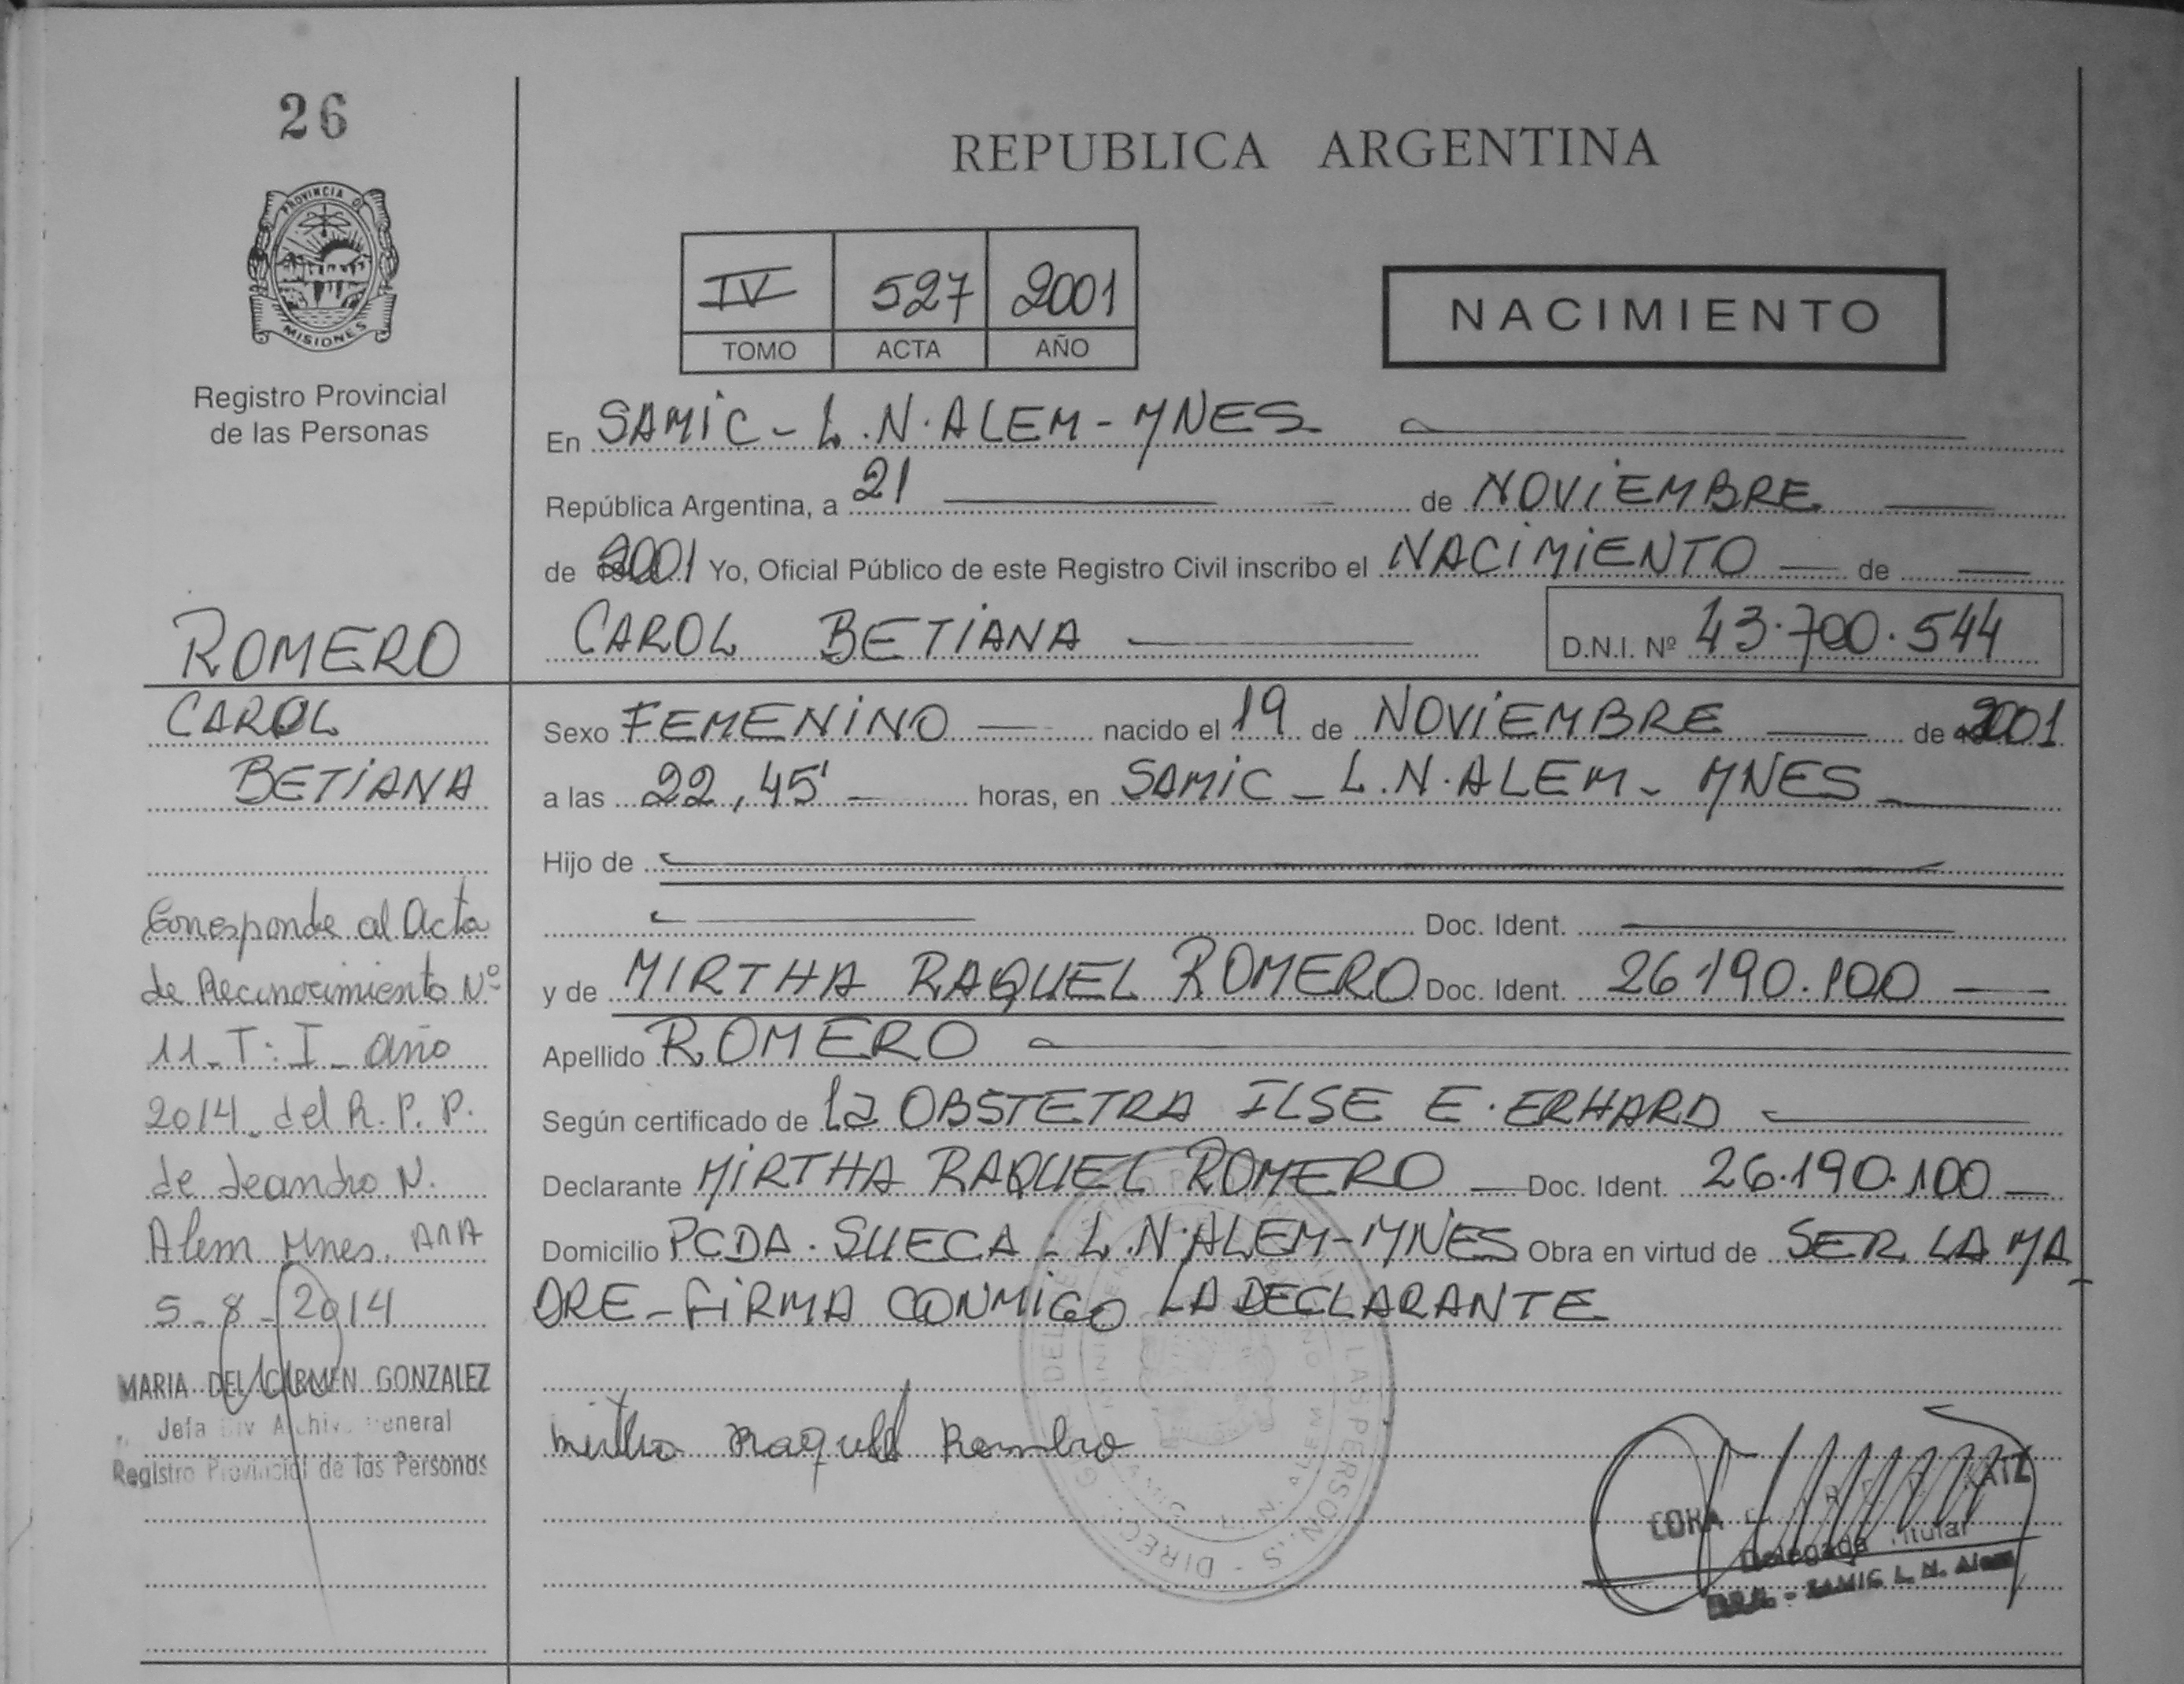 26
PROVINCIA DE
MISIONES
Registro Provincial
de las Personas
ROMERO
CAROL
BETIANA
Corresponde al Acta
de Reconocimiento Nº
11_T: I_ año
2014_ del R. P. P.
de Leandro N.
Alem Mnes.
5_8_2014
MARIA DEL CARMEN GONZALEZ
Jefa Div Archivo General
Registro Provincial de las Personas
REPUBLICA ARGENTINA
IV 527 2001
TOMO ACTA AÑO
NACIMIENTO
En SAMIC - L.N. ALEM - MNES
República Argentina, a 21 de NOVIEMBRE
de 2001 Yo, Oficial Público de este Registro Civil inscribo el NACIMIENTO de
CAROL BETIANA D.N.I. Nº 43.700.544
Sexo FEMENINO nacido el 19 de NOVIEMBRE de 2001
a las 22,45' horas, en SAMIC - L.N. ALEM - MNES
Hijo de
Doc. Ident.
y de MIRTHA RAQUEL ROMERO Doc. Ident. 26190.100
Apellido ROMERO
Según certificado de la OBSTETRA ILSE E. ERHARD
Declarante MIRTHA RAQUEL ROMERO Doc. Ident. 26.190.100
Domicilio PCDA. SUECA - L.N. ALEM - MNES Obra en virtud de SER LA MA
DRE - FIRMA CONMIGO LA DECLARANTE
Mirtha Raquel Romero
CORA
Delegada Titular
SAMIC L. N. Alem